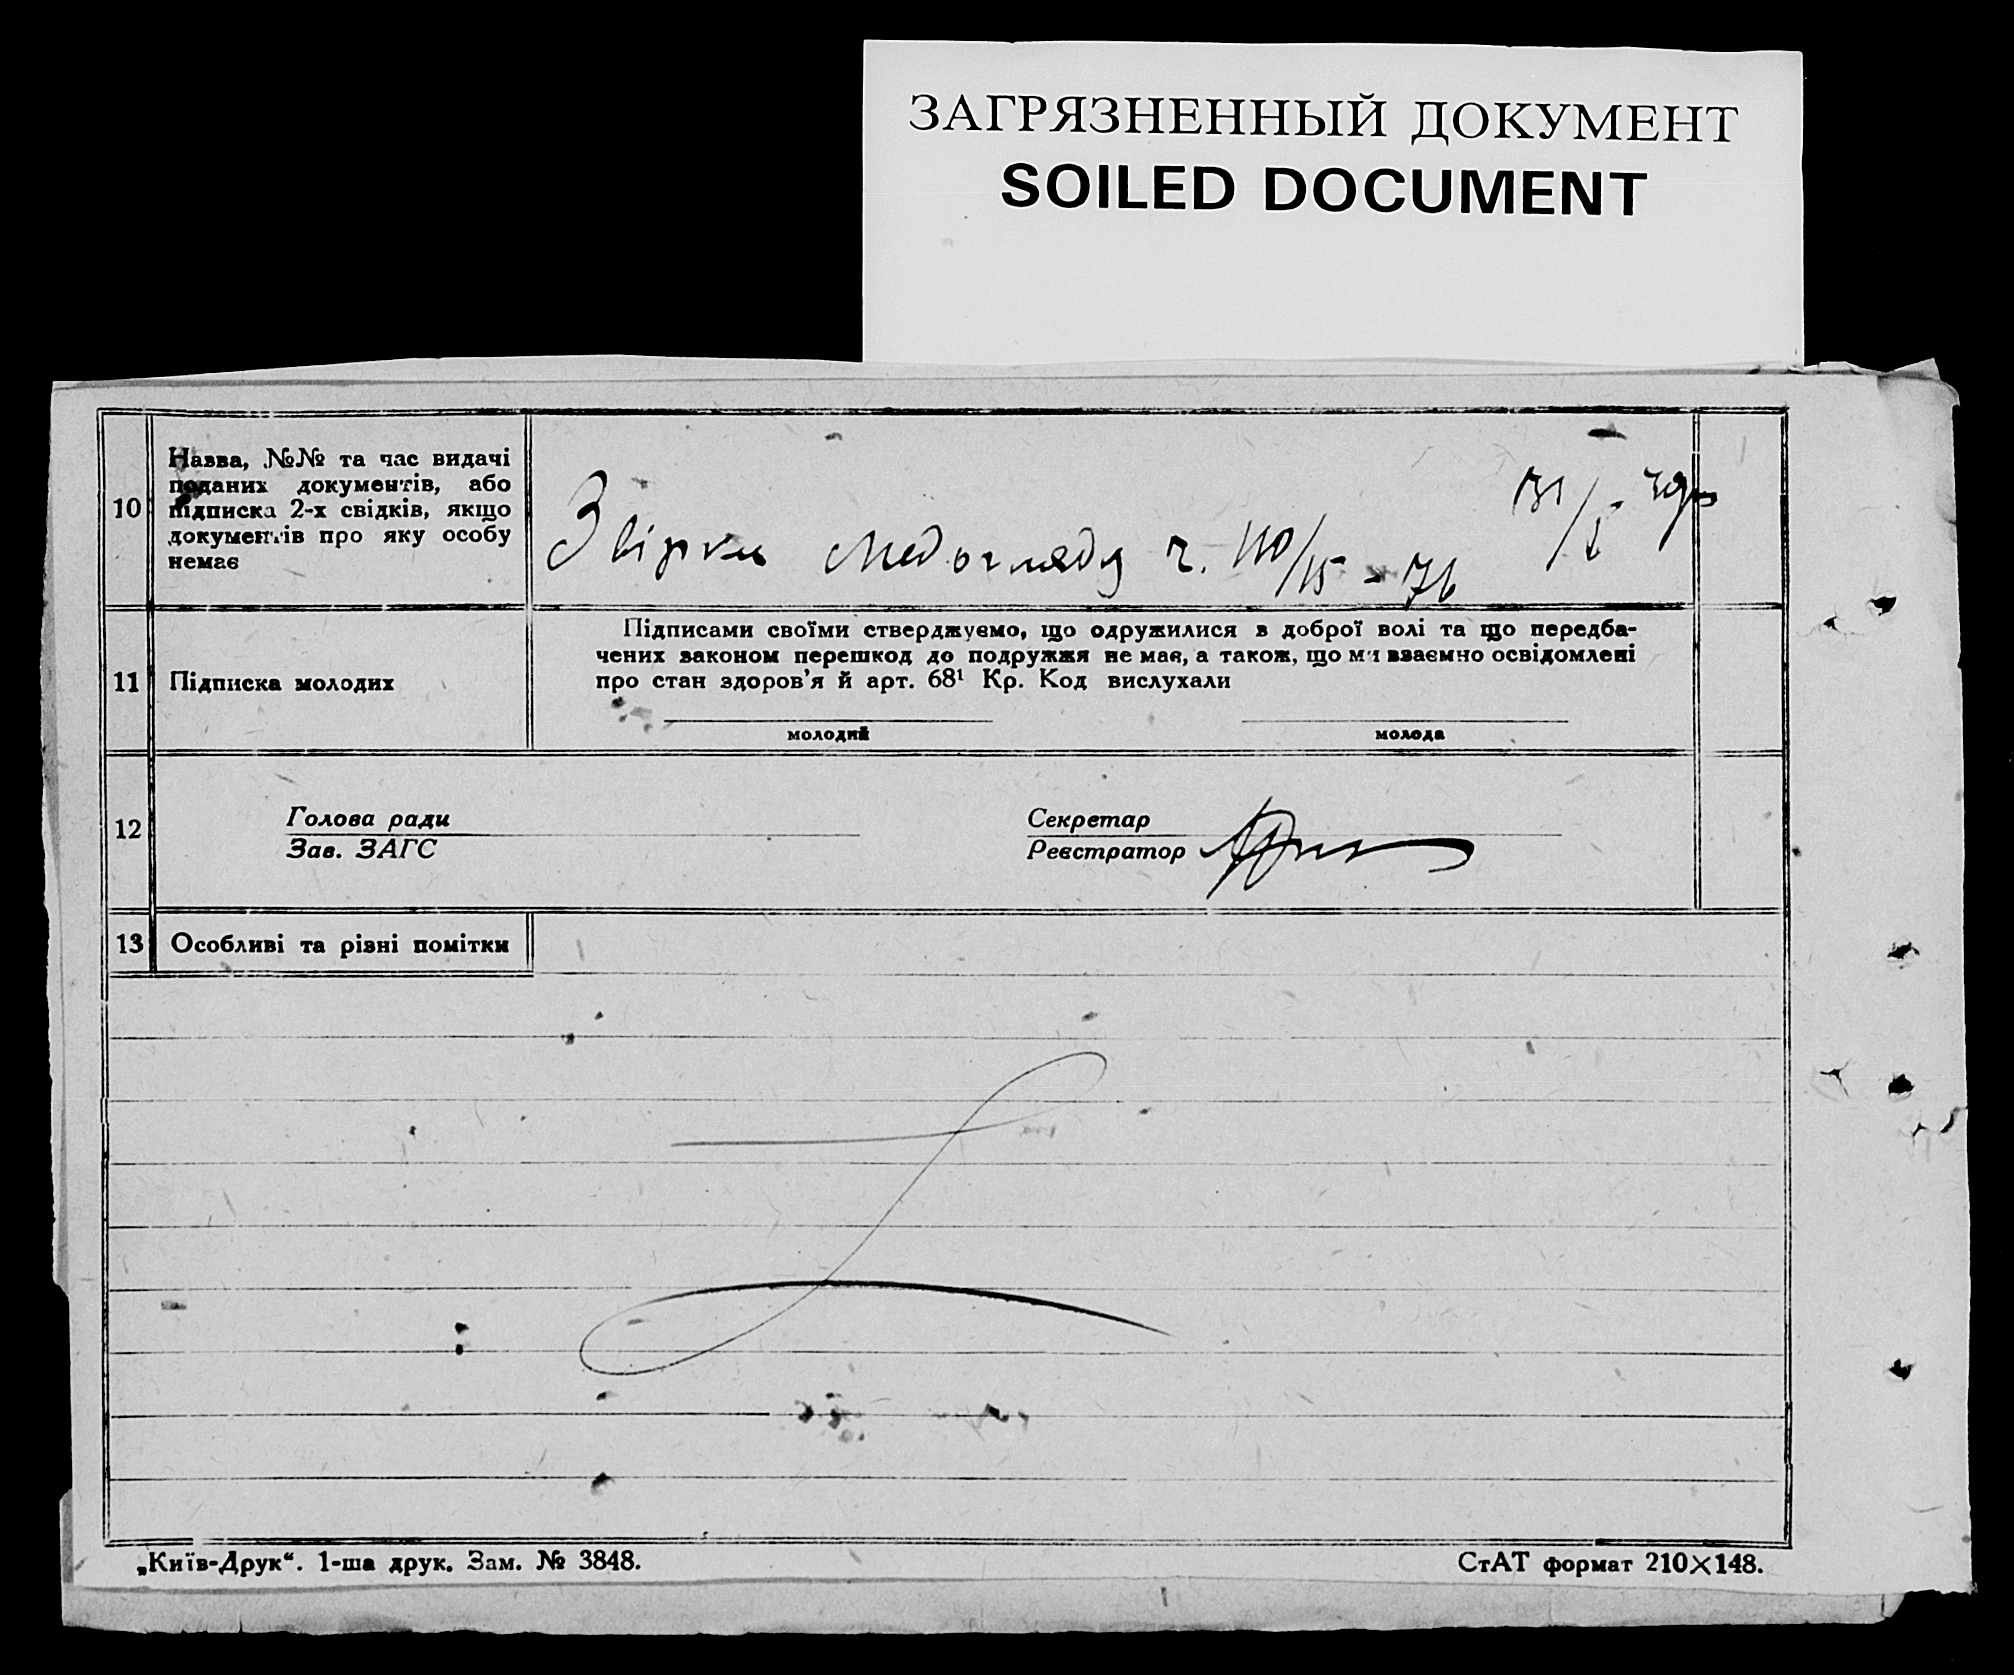 ЗАГРЯЗНЕННЫЙ ДОКУМЕНТ
SOILED DOCUMENT
10
Назва, №№ та час видачі
поданих документів, або
підписка 2-х свідків, якщо
документів про яку особу
немає
Звірки Медогляду ч. 110/15 - 76
31/5
11
Підписка молодих
Підписами своїми стверджуємо, що одружилися в доброї волі та що передба-
чених законом перешкод до подружжя не має, а також, що ми взаємно освідомлені
про стан здоров'я й арт. 68¹ Кр. Код вислухали
молодий
молода
12
Голова ради
Зав. ЗАГС
Секретар
Реєстратор
13
Особливі та різні помітки
„Київ-Друк“. 1-ша друк. Зам. № 3848.
СтАТ формат 210×148.